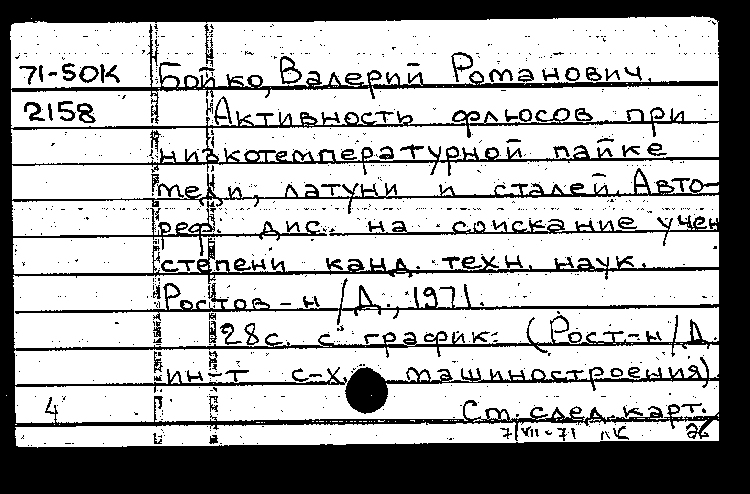 71-50К Бойко, Валерий Романович.
2158 Активность флюсов при
низкотемпературной пайке
меди, латуни и сталей. Авто-
реф. дис. на соискание учен
степени канд. техн. наук.
Ростов-н/Д., 1971.
28с. с график. (Рост.-н/Д.
ин-т с-х. машиностроения)
4 См. след. карт.
7/VII-71 ЛК